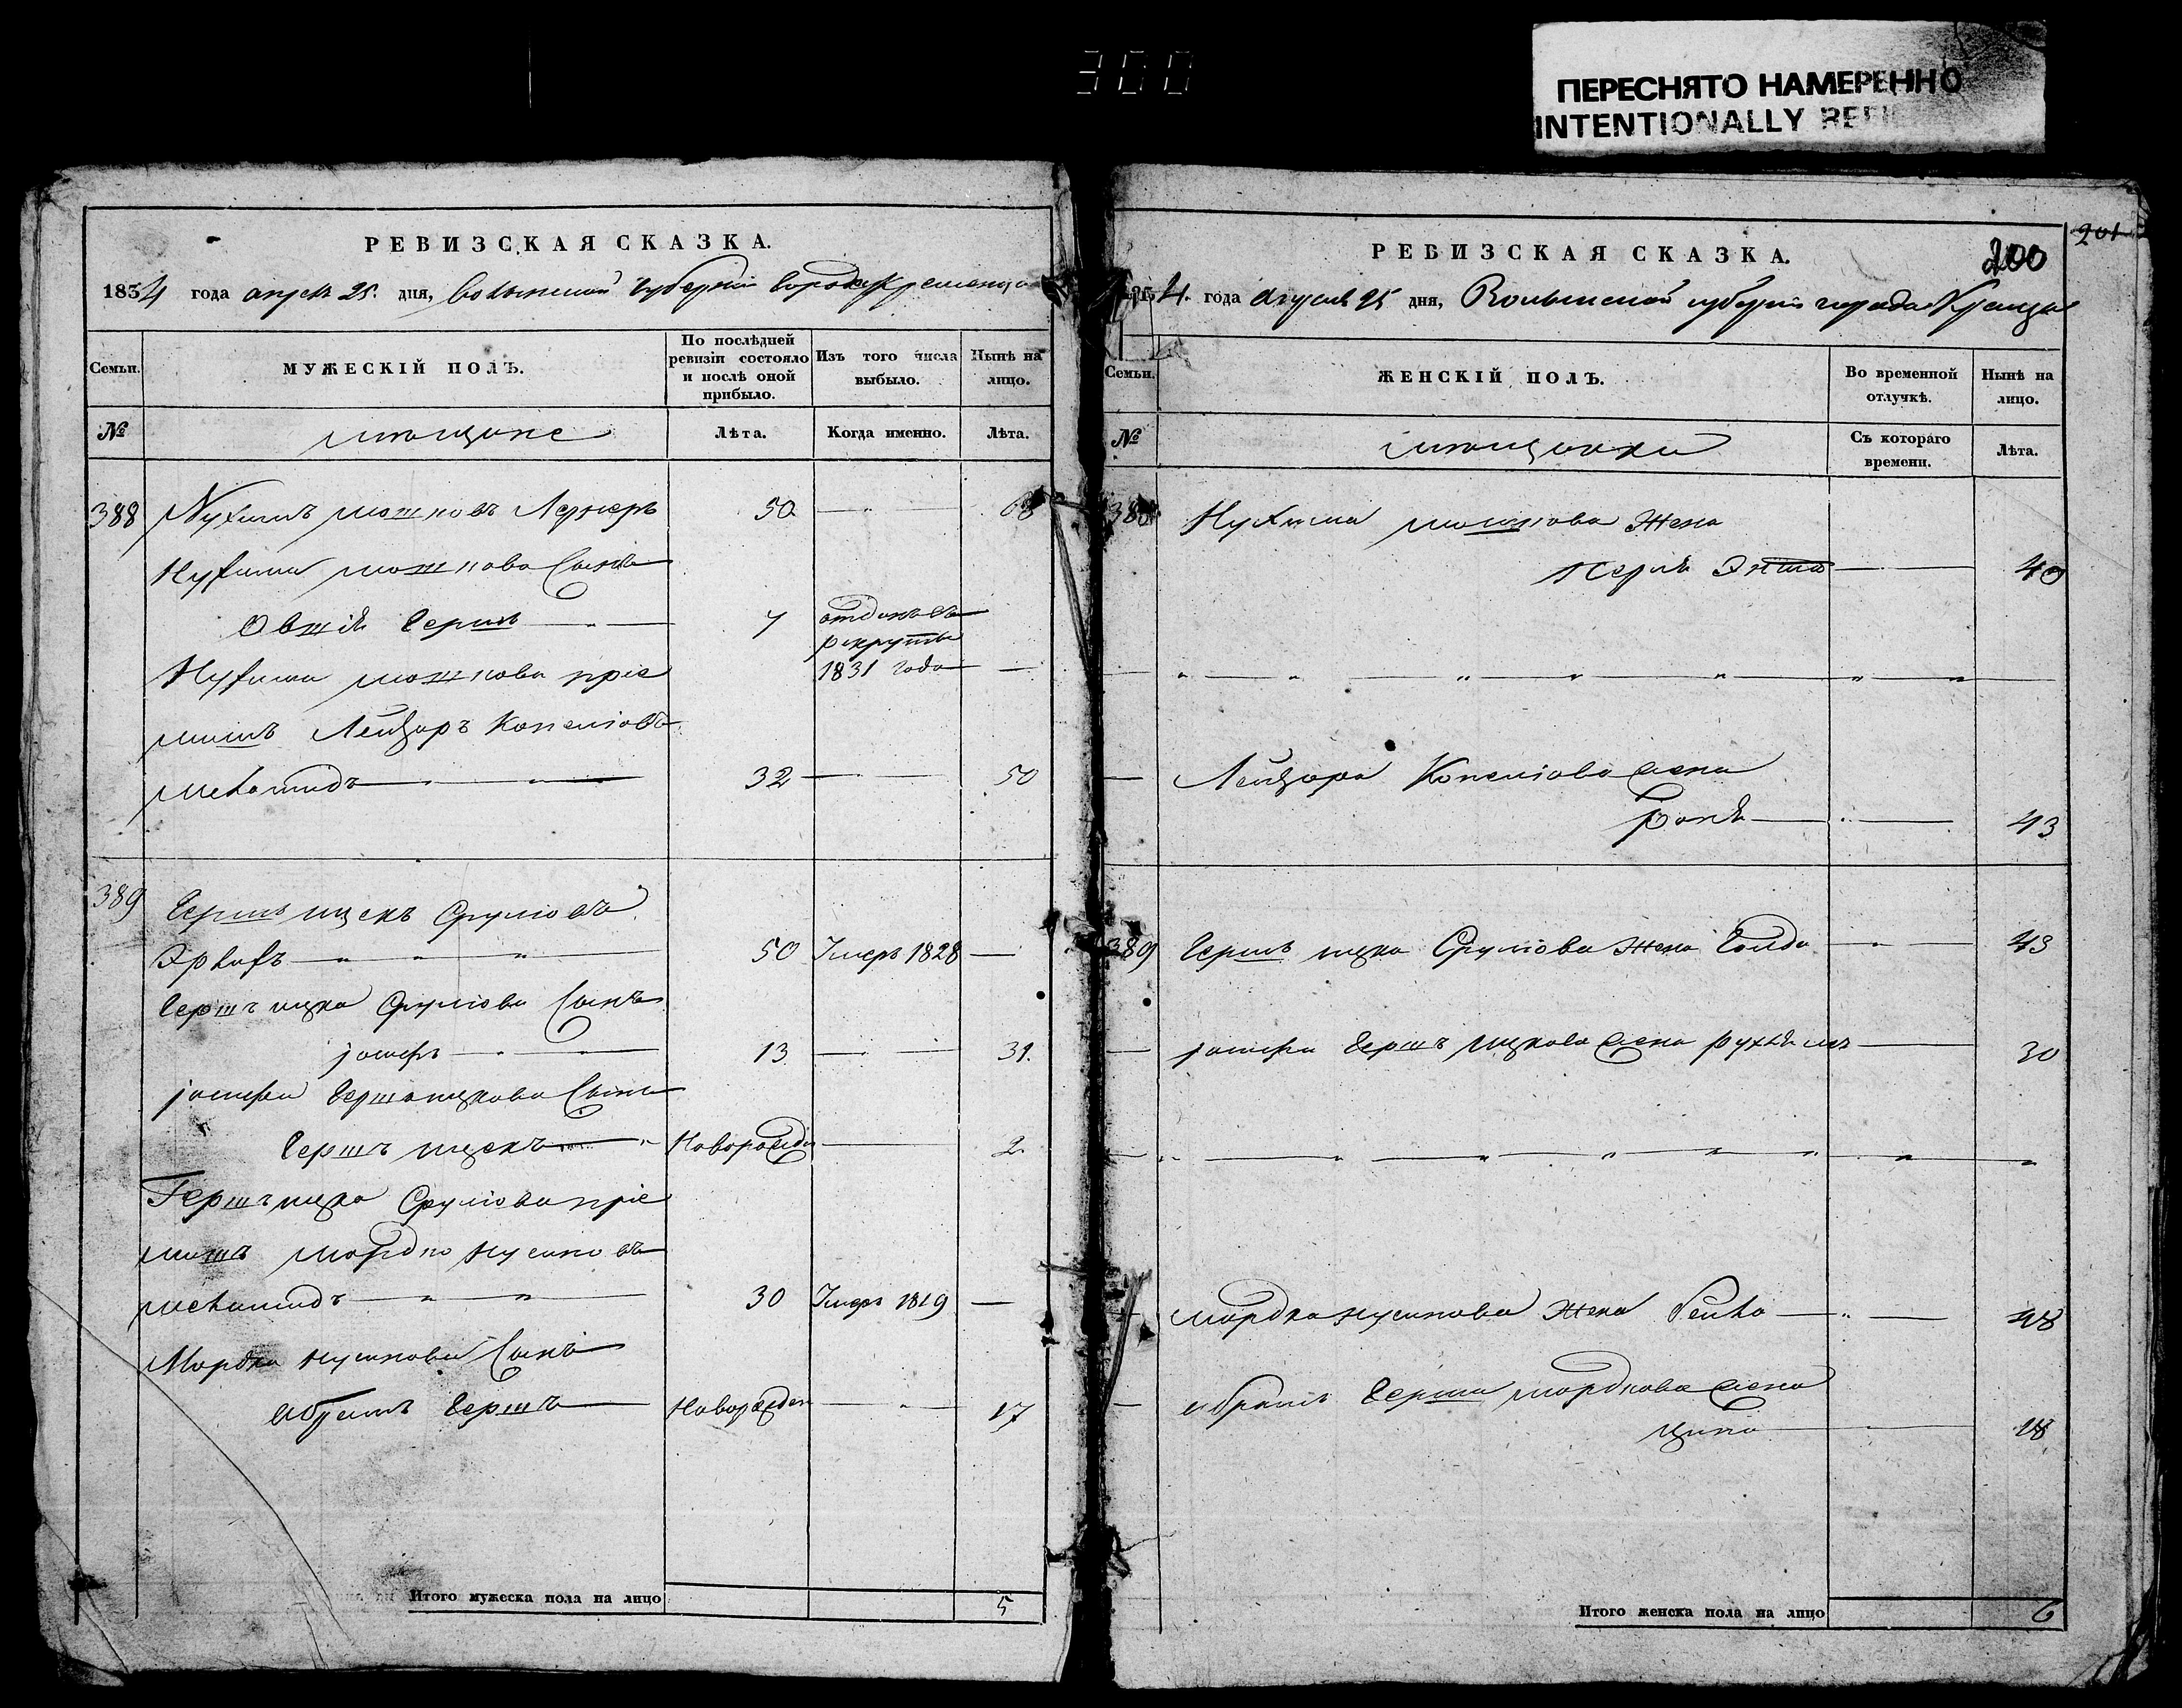 300
ПЕРЕСНЯТО НАМЕРЕННО
INTENTIONALLY
РЕВИЗСКАЯ СКАЗКА.
1834 года апреля 25. дня, Волынской губернии города Кременца
Семьи.
МУЖЕСКІЙ ПОЛЪ.
По послѣдней ревизіи состояло и послѣ оной прибыло.
Изъ того числа выбыло.
Нынѣ на лицо.
№
мещане
Лѣта.
Когда именно.
Лѣта.
388 Нухимъ мошковъ Лернеръ 50 68
Нухима мошкова Сынъ
Овшій Гершъ 7 отданъ въ
рекруты
Нухима мошкова пріе 1831 года
мышъ Лейзоръ Копелiовъ
меламидъ 32 50
389 Гершъ ицекъ Сруліовъ
50 Умеръ 1828
Гершъ ицка Сруліова Сынъ
іосифъ 13 31.
іосифа Гершъ ицкова Сынъ
Гершъ ицекъ Новорожде 2
Гершъ ицка Сруліова пріе
мышъ мордко нусиновъ
меламидъ 30 Умеръ 1819
Мордка нусинова Сынъ
Абрамъ Гершъ Новорожден 17
Итого мужеска пола на лицо 5
201
200
РЕВИЗСКАЯ СКАЗКА.
4. года Апреля 25 дня, Волынской губерніи города Кременца
Семьи.
ЖЕНСКІЙ ПОЛЪ.
Во временной отлучкѣ.
Нынѣ на лицо.
№
мещанки
Съ котораго времени.
Лѣта.
388 Нухима мошкова Жена
Перля Энта 40
Лейзора Копелiова жена
Рася 43
389 Гершъ ицка Сруліова Жена Голда 43
іосифа Гершъ ицкова жена Рухля 30
мордка нусинова Жена Бейла 48
абрамъ Герша мордкова жена
ципа 18
Итого женска пола на лицо 6